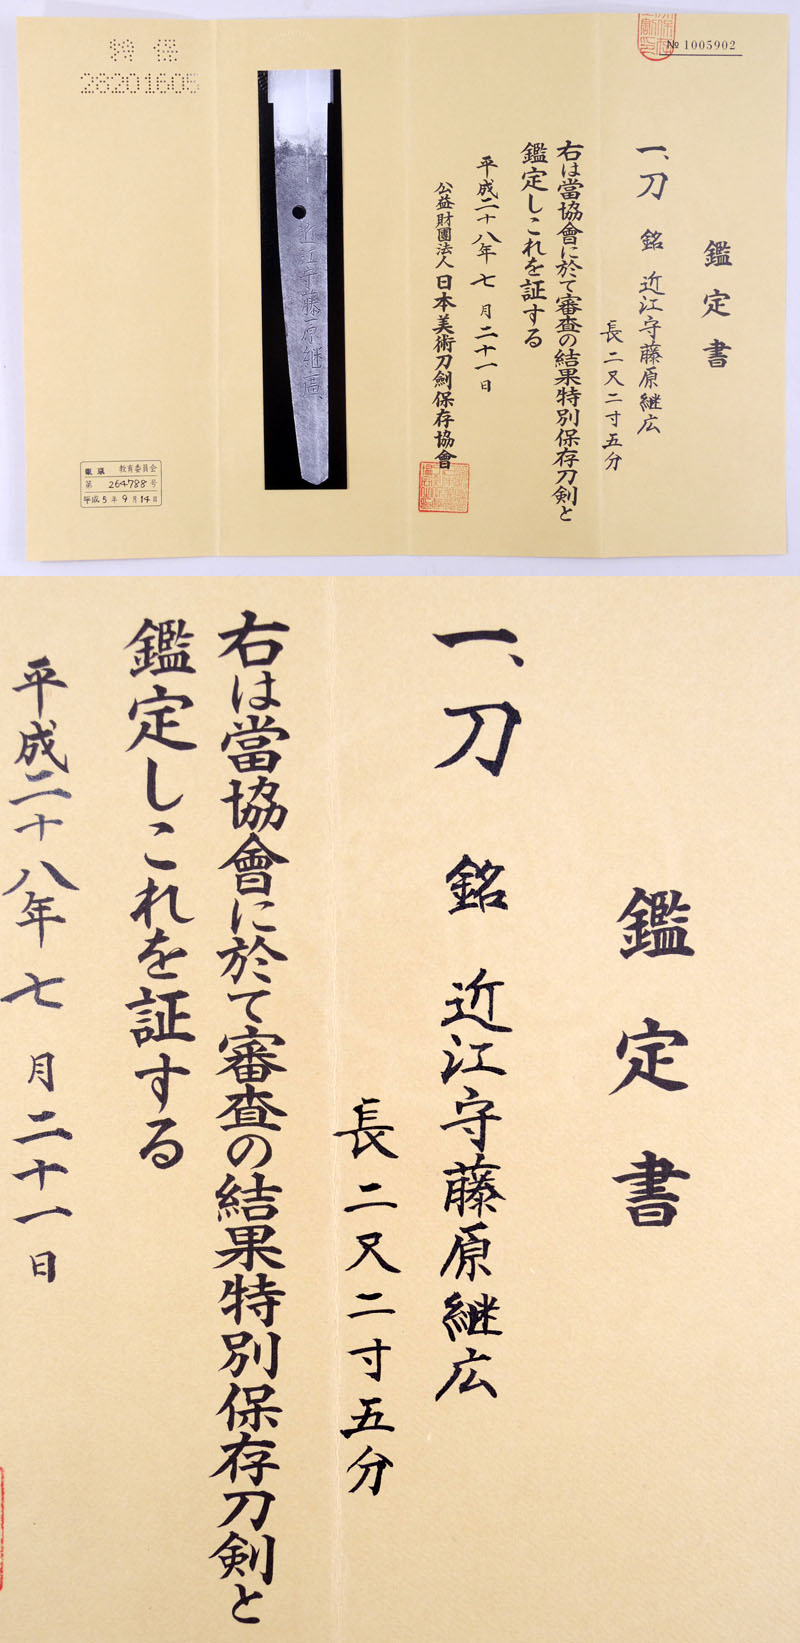 № 1005902
鑑定書
一、刀 銘 近江守藤原継広
長二尺二寸五分
右は當協會に於て審査の結果特別保存刀剣と
鑑定しこれを証する
平成二十八年七月二十一日
公益財團法人 日本美術刀劍保存協會
近江守藤原継廣
特保
28201605
東京 教育委員会
第 264788 号
平成5年9月14日
鑑定書
一、刀 銘 近江守藤原継広
長二尺二寸五分
右は當協會に於て審査の結果特別保存刀剣と
鑑定しこれを証する
平成二十八年七月二十一日